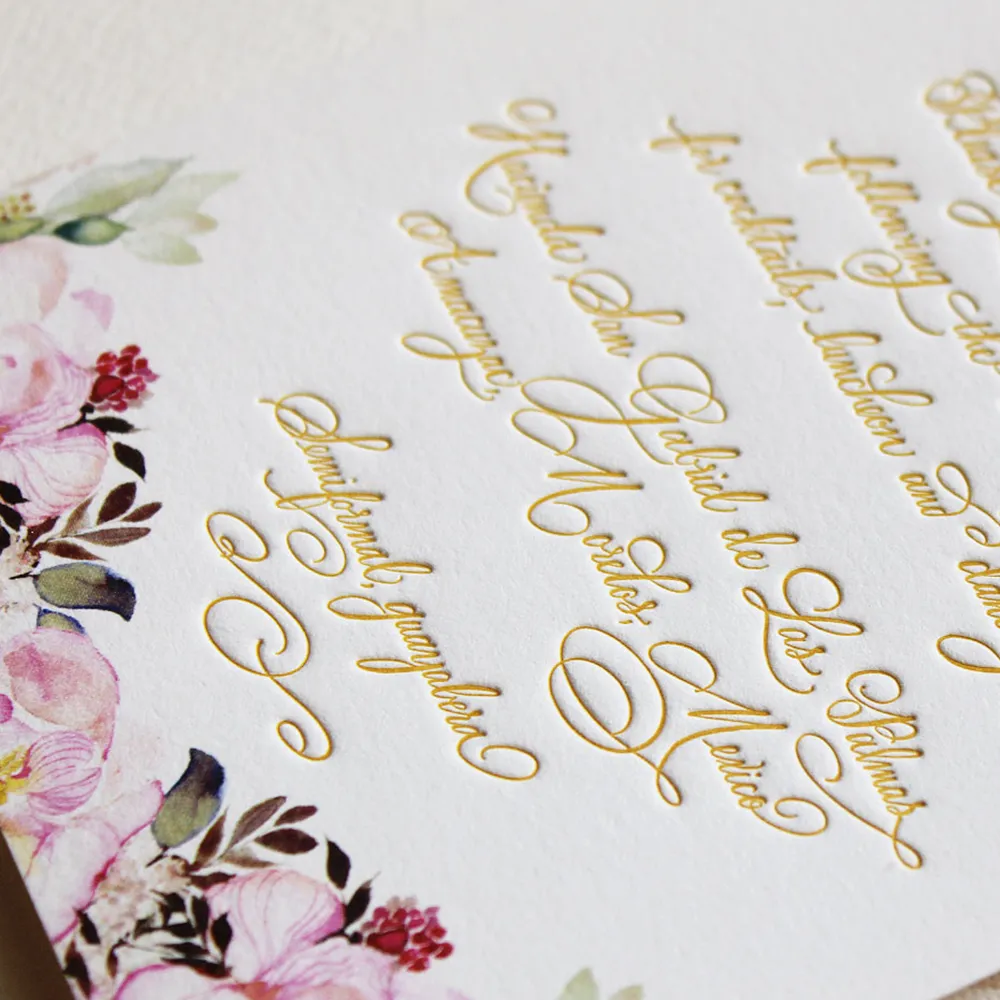 Please
following the
for cocktails, luncheon and
Hacienda San Gabriel de Las Palmas
Amacuzac, Morelos, Mexico
Semiformal, guayabera